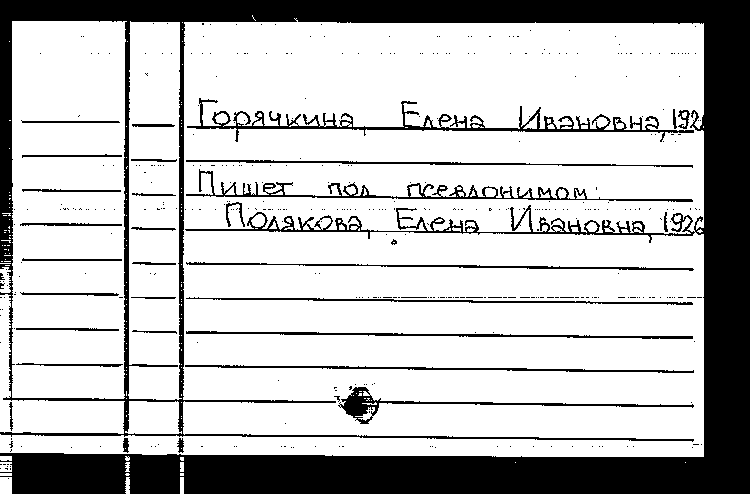 Горячкина, Елена Ивановна, 1926
Пишет под псевдонимом:
Полякова, Елена Ивановна, 1926